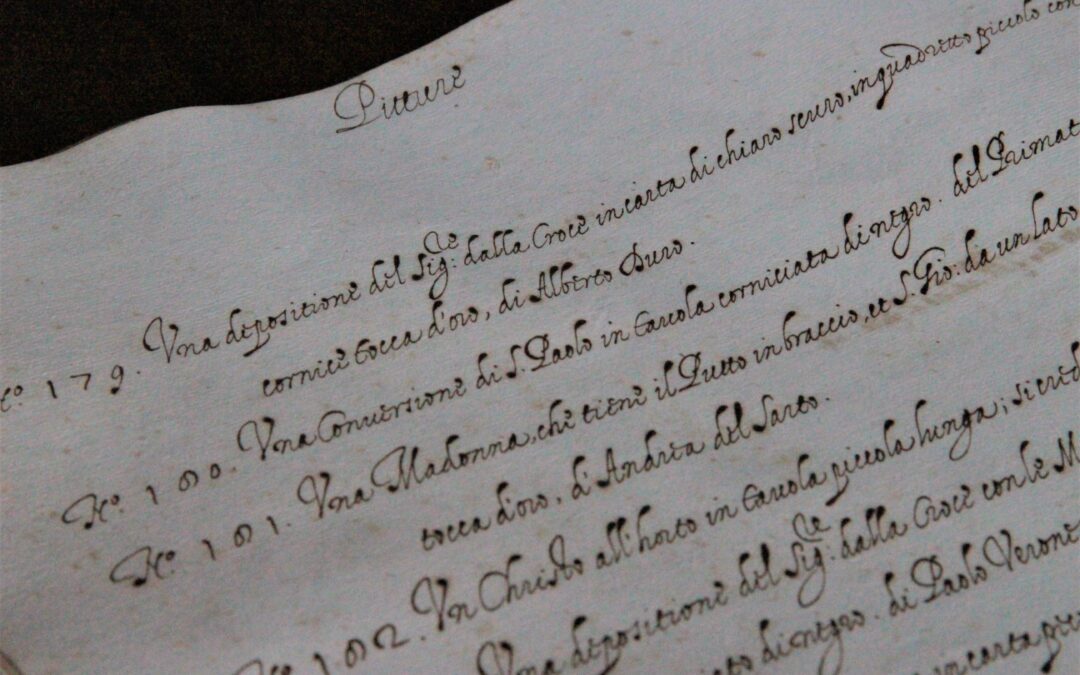 Pitture
N.º 179. Una depositione del Sig.re dalla Croce in carta di chiaro scuro, in quadretto piccolo con
cornice tocca d'oro, di Alberto Duro.
N.º 180. Una Conversione di S. Paolo in tavola corniciata di negro. del Primat
N.º 181. Una Madonna, che tiene il Putto in braccio, et S. Gio: da un lato
tocca d'oro, d'Andrea del Sarto.
N.º 182. Un Christo all'horto in tavola piccola lunga; si crede
Una depositione del Sig.re dalla Croce con le M
di negro. di Paolo Verone
in carta pic